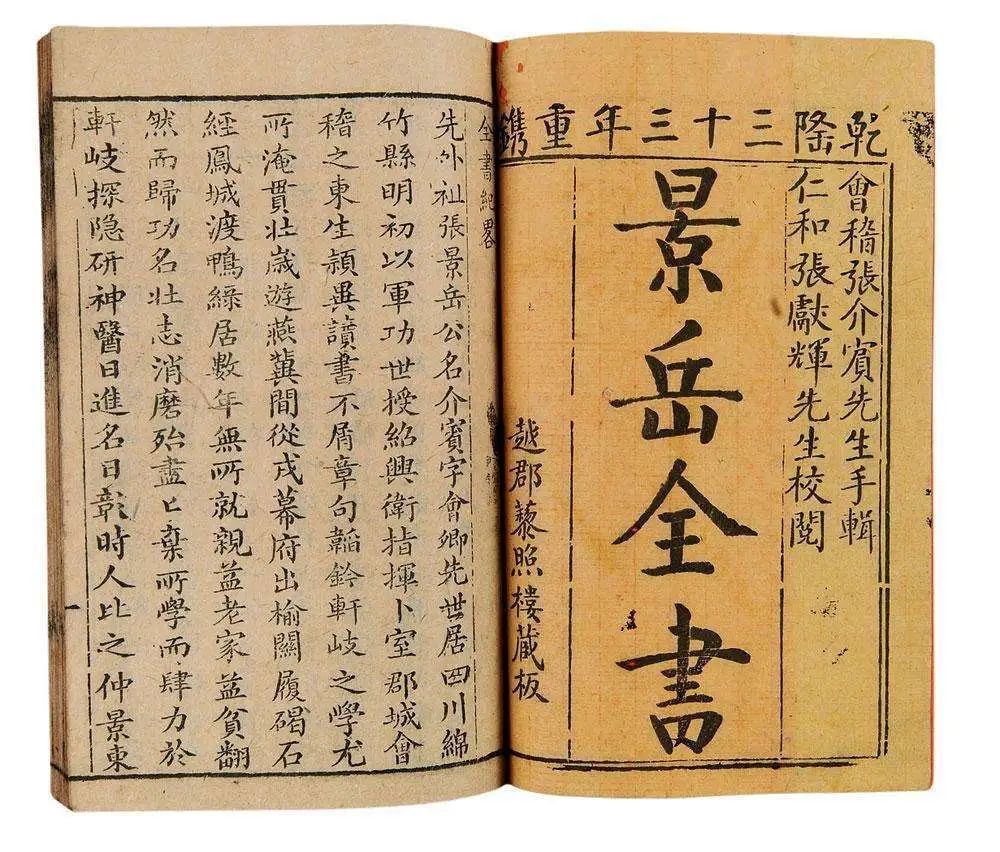 乾隆三十三年重鐫
會稽張介賓先生手輯
仁和張獻輝先生校閱
景岳全書
越郡藜照樓蔵板
全書紀畧
先外祖張景岳公名介賓字會卿先世居四川綿
竹縣明初以軍功世授紹興衛指揮卜室郡城會
稽之東生頴異讀書不屑章句韜鈐軒岐之學尤
所淹貫壯歲遊燕冀間從戎幕府出榆關履碣石
經鳳城渡鴨綠居數年無所就親益老家益貧翻
然而歸功名壯志消磨殆盡匕棄所學而肆力於
軒岐探隐研神醫日進名日彰時人比之仲景東
一